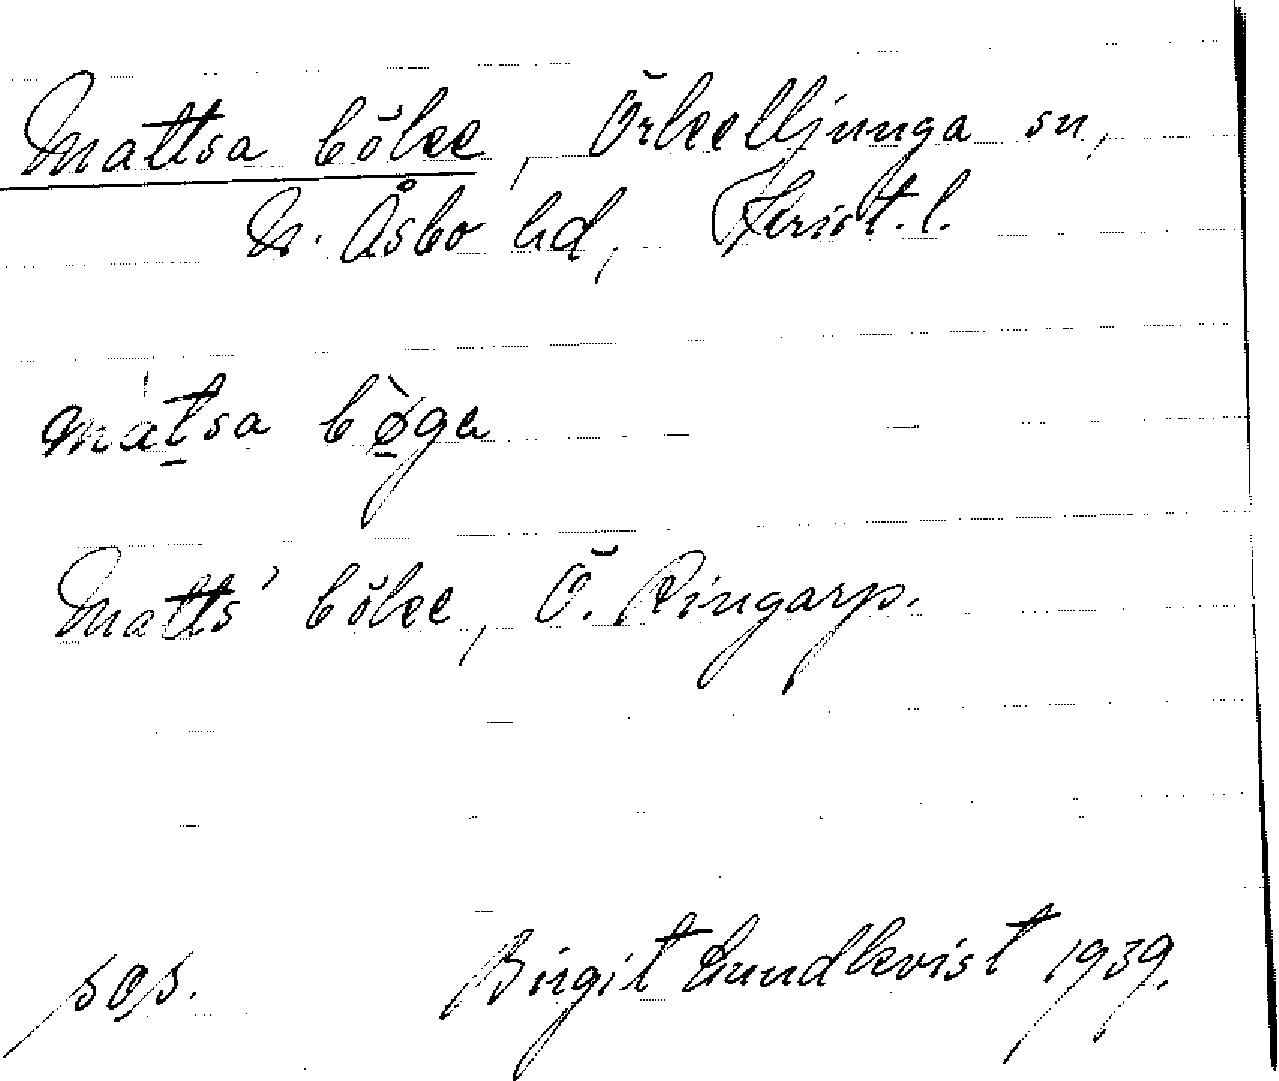 Mattsa böke, Örkelljunga sn,
N. Åsbo hd, Krist. l.
matsa bø̀ga
Matts' böke, Ö. Ringarp.
pop. Birgit Lundkvist 1939.